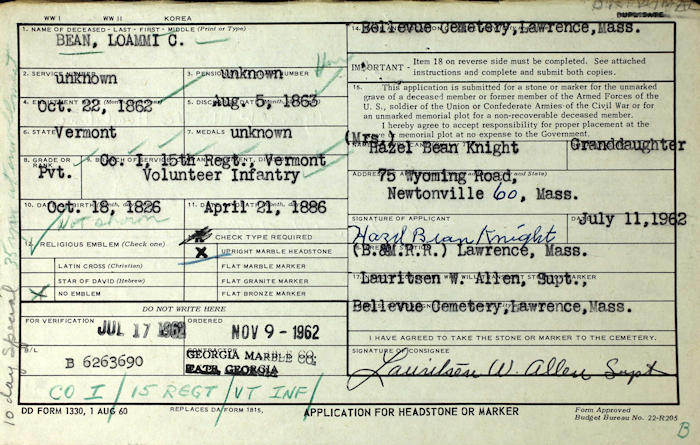 WW I WW II KOREA
1. NAME OF DECEASED - LAST - FIRST - MIDDLE (Print or Type)
BEAN, LOAMMI C.
2. SERVICE NUMBER
unkhown
3. PENSION NUMBER
unknown
4. ENLISTMENT
Oct. 22, 1862
5. DISCHARGE
Aug. 5, 1863
6. STATE
Vermont
7. MEDALS
unknown
8. GRADE OR RANK
Pvt.
9. BRANCH OF SERVICE
Co. I, 15th Regt., Vermont
Volunteer Infantry
10. DATE OF BIRTH
Oct. 18, 1826
11. DATE OF DEATH
April 21, 1886
Not shown
12. RELIGIOUS EMBLEM (Check one)
LATIN CROSS (Christian)
STAR OF DAVID (Hebrew)
X NO EMBLEM
CHECK TYPE REQUIRED
X UPRIGHT MARBLE HEADSTONE
FLAT MARBLE MARKER
FLAT GRANITE MARKER
FLAT BRONZE MARKER
DO NOT WRITE HERE
FOR VERIFICATION
JUL 17 1962
ORDERED
NOV 9 - 1962
B/L
B 6263690
GEORGIA MARBLE CO.
TATE, GEORGIA
CO I / 15 REGT / VT INF /
DD FORM 1330, 1 AUG 60
REPLACES DA FORM 1815,
10 day Special
DUPLICATE
14.
Bellevue Cemetery, Lawrence, Mass.
IMPORTANT - Item 18 on reverse side must be completed. See attached
instructions and complete and submit both copies.
15. This application is submitted for a stone or marker for the unmarked
grave of a deceased member or former member of the Armed Forces of the
U. S., soldier of the Union or Confederate Armies of the Civil War or for
an unmarked memorial plot for a non-recoverable deceased member.
I hereby agree to accept responsibility for proper placement at the
grave or memorial plot at no expense to the Government.
(Mrs.)
Hazel Bean Knight
Granddaughter
75 Wyoming Road,
Newtonville 60, Mass.
SIGNATURE OF APPLICANT
DATE
July 11, 1962
Hazel Bean Knight
(B.&M.R.R.) Lawrence, Mass.
17.
Lauritsen W. Allen, Supt.,
Bellevue Cemetery, Lawrence, Mass.
I HAVE AGREED TO TAKE THE STONE OR MARKER TO THE CEMETERY.
SIGNATURE OF CONSIGNEE
Lauritsen W. Allen Supt
APPLICATION FOR HEADSTONE OR MARKER
Form Approved
Budget Bureau No. 22-R205
B